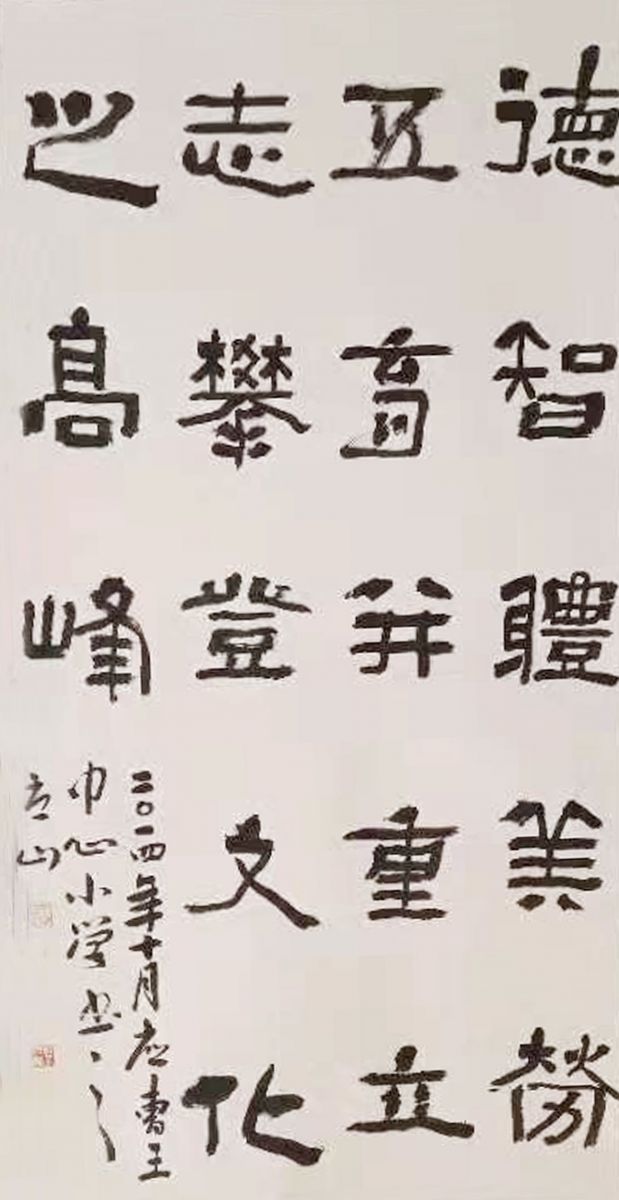 德智體美勞
五育並重立
志攀登文化
之高峰
二〇一四年十月应曹王
中心小学书之
立山